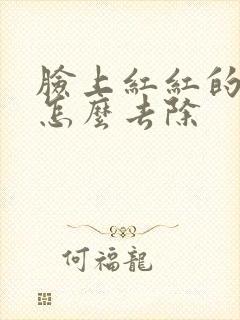 臉上紅紅的
怎麼去除
何福龍